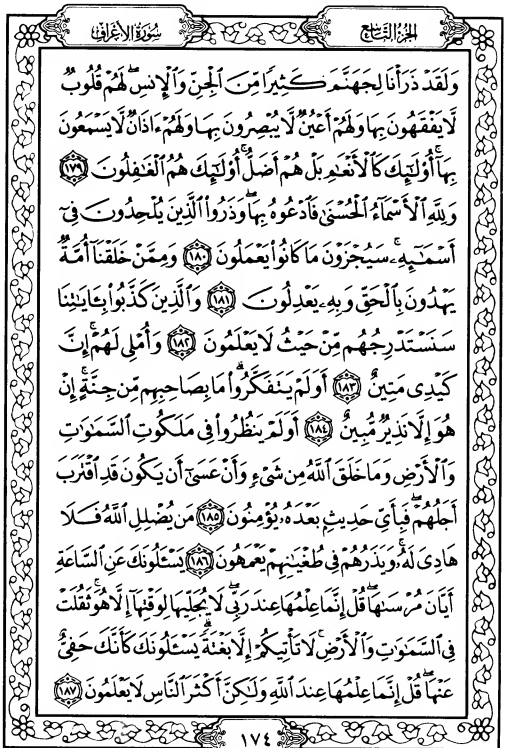 سُورَةُ الأَعْرَافِ
الجُزءُ التَّاسِعُ
وَلَقَدْ ذَرَأْنَا لِجَهَنَّمَ كَثِيرًا مِّنَ الْجِنِّ وَالْإِنسِ ۖ لَهُمْ قُلُوبٌ
لَّا يَفْقَهُونَ بِهَا وَلَهُمْ أَعْيُنٌ لَّا يُبْصِرُونَ بِهَا وَلَهُمْ ءَاذَانٌ لَّا يَسْمَعُونَ
بِهَآ ۚ أُو۟لَٰٓئِكَ كَالْأَنْعَٰمِ بَلْ هُمْ أَضَلُّ ۚ أُو۟لَٰٓئِكَ هُمُ الْغَٰفِلُونَ ١٧٩
وَلِلَّهِ الْأَسْمَآءُ الْحُسْنَىٰ فَادْعُوهُ بِهَا ۖ وَذَرُوا۟ الَّذِينَ يُلْحِدُونَ فِىٓ
أَسْمَٰٓئِهِۦ ۚ سَيُجْزَوْنَ مَا كَانُوا۟ يَعْمَلُونَ ١٨٠ وَمِمَّنْ خَلَقْنَآ أُمَّةٌ
يَهْدُونَ بِالْحَقِّ وَبِهِۦ يَعْدِلُونَ ١٨١ وَالَّذِينَ كَذَّبُوا۟ بِـَٔايَٰتِنَا
سَنَسْتَدْرِجُهُم مِّنْ حَيْثُ لَا يَعْلَمُونَ ١٨٢ وَأُمْلِى لَهُمْ ۚ إِنَّ
كَيْدِى مَتِينٌ ١٨٣ أَوَلَمْ يَتَفَكَّرُوا۟ ۗ مَا بِصَاحِبِهِم مِّن جِنَّةٍ ۚ إِنْ
هُوَ إِلَّا نَذِيرٌ مُّبِينٌ ١٨٤ أَوَلَمْ يَنظُرُوا۟ فِى مَلَكُوتِ السَّمَٰوَٰتِ
وَالْأَرْضِ وَمَا خَلَقَ اللَّهُ مِن شَىْءٍ وَأَنْ عَسَىٰٓ أَن يَكُونَ قَدِ اقْتَرَبَ
أَجَلُهُمْ ۖ فَبِأَىِّ حَدِيثٍۭ بَعْدَهُۥ يُؤْمِنُونَ ١٨٥ مَن يُضْلِلِ اللَّهُ فَلَا
هَادِىَ لَهُۥ ۚ وَيَذَرُهُمْ فِى طُغْيَٰنِهِمْ يَعْمَهُونَ ١٨٦ يَسْـَٔلُونَكَ عَنِ السَّاعَةِ
أَيَّانَ مُرْسَىٰهَا ۖ قُلْ إِنَّمَا عِلْمُهَا عِندَ رَبِّى ۖ لَا يُجَلِّيهَا لِوَقْتِهَآ إِلَّا هُوَ ۚ ثَقُلَتْ
فِى السَّمَٰوَٰتِ وَالْأَرْضِ ۚ لَا تَأْتِيكُمْ إِلَّا بَغْتَةً ۗ يَسْـَٔلُونَكَ كَأَنَّكَ حَفِىٌّ
عَنْهَا ۖ قُلْ إِنَّمَا عِلْمُهَا عِندَ اللَّهِ وَلَٰكِنَّ أَكْثَرَ النَّاسِ لَا يَعْلَمُونَ ١٨٧
١٧٤